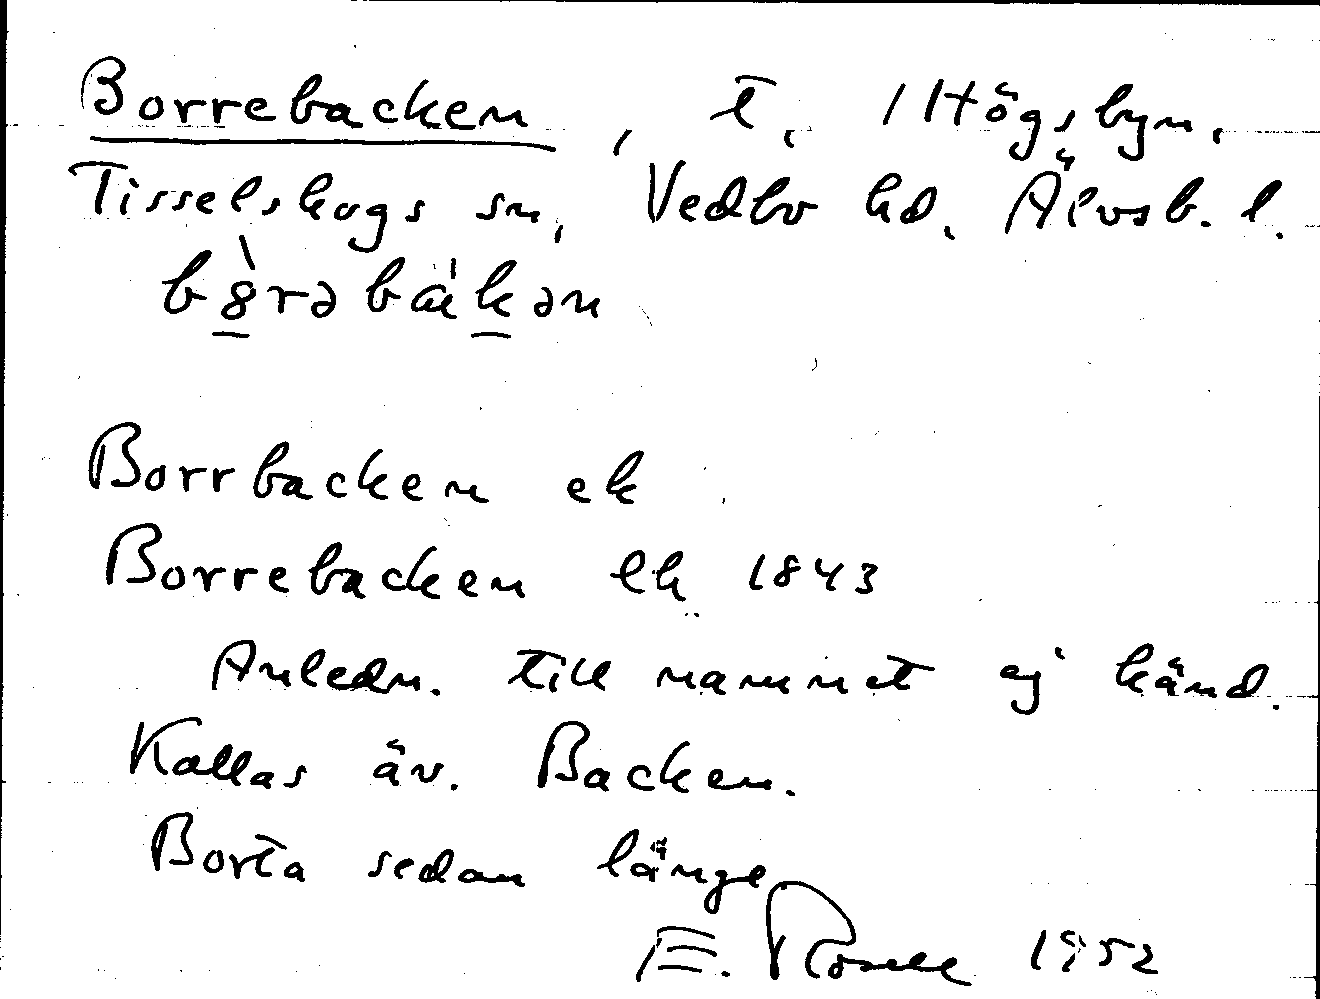 Borrebacken, t. / Högsbyn.
Tisselskogs sn, Vedbo hd. Älvsb. l.
b8̀rəbaˈkən
Borrbacken ek
Borrebacken lk 1843
Anledn. till namnet ej känd.
Kallas äv. Backen.
Borta sedan länge
E. Rosell 1952